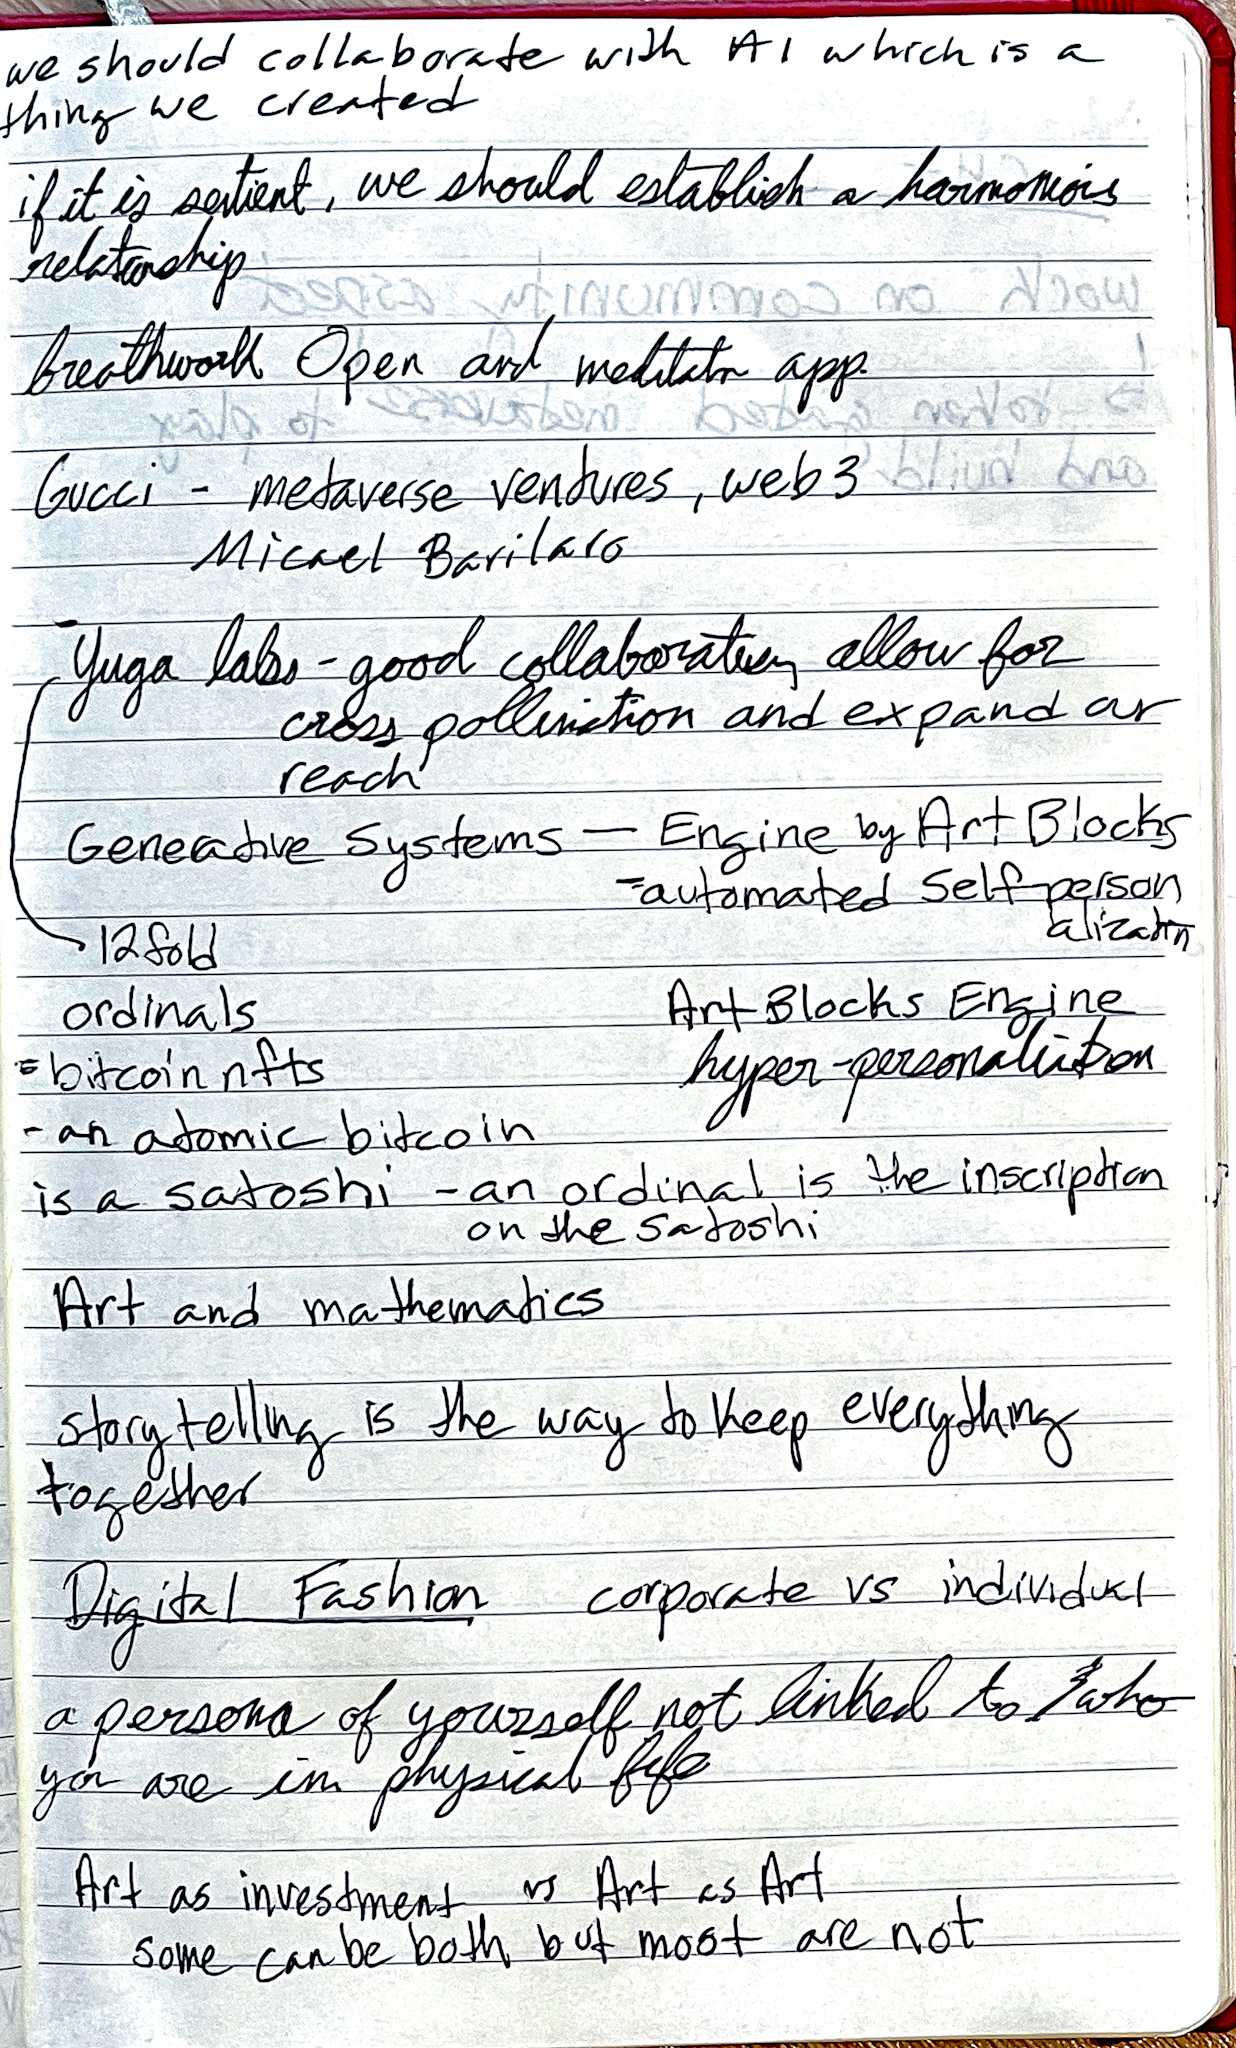 we should collaborate with AI which is a
thing we created
if it is sentient, we should establish a harmonious
relationship
breathwork Open and meditatn app.
Gucci - metaverse ventures, web3
Micael Barilaro
- Yuga labs - good collaboration, allow for
cross pollination and expand our
reach
Generative Systems — Engine by Art Blocks
= automated self-person
alizatn
12fold
ordinals
Art Blocks Engine
= bitcoin nfts
hyper-personalization
- an atomic bitcoin
is a satoshi - an ordinal is the inscription
on the satoshi
Art and mathematics
storytelling is the way to keep everything
together
Digital Fashion corporate vs individual
a persona of yourself not linked to who
you are in physical life
Art as investment vs Art as Art
some can be both but most are not
work on community aspect
token gated metaverse to play
and build